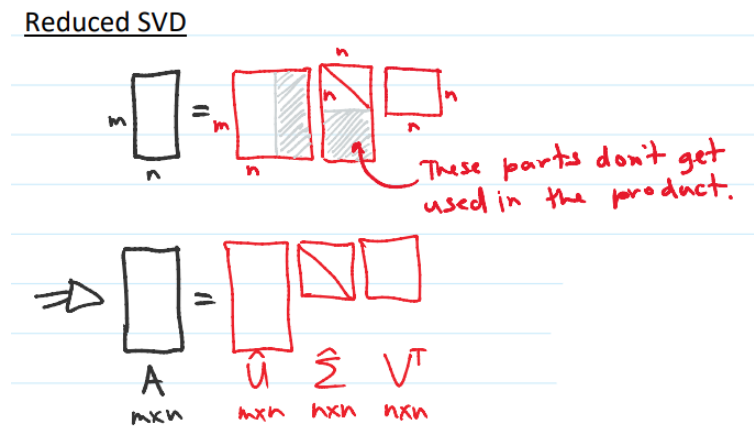 Reduced SVD
n
m = m n n
n n n
These parts don't get
used in the product.
⇒ =
A Û Σ̂ Vᵀ
m×n m×n n×n n×n